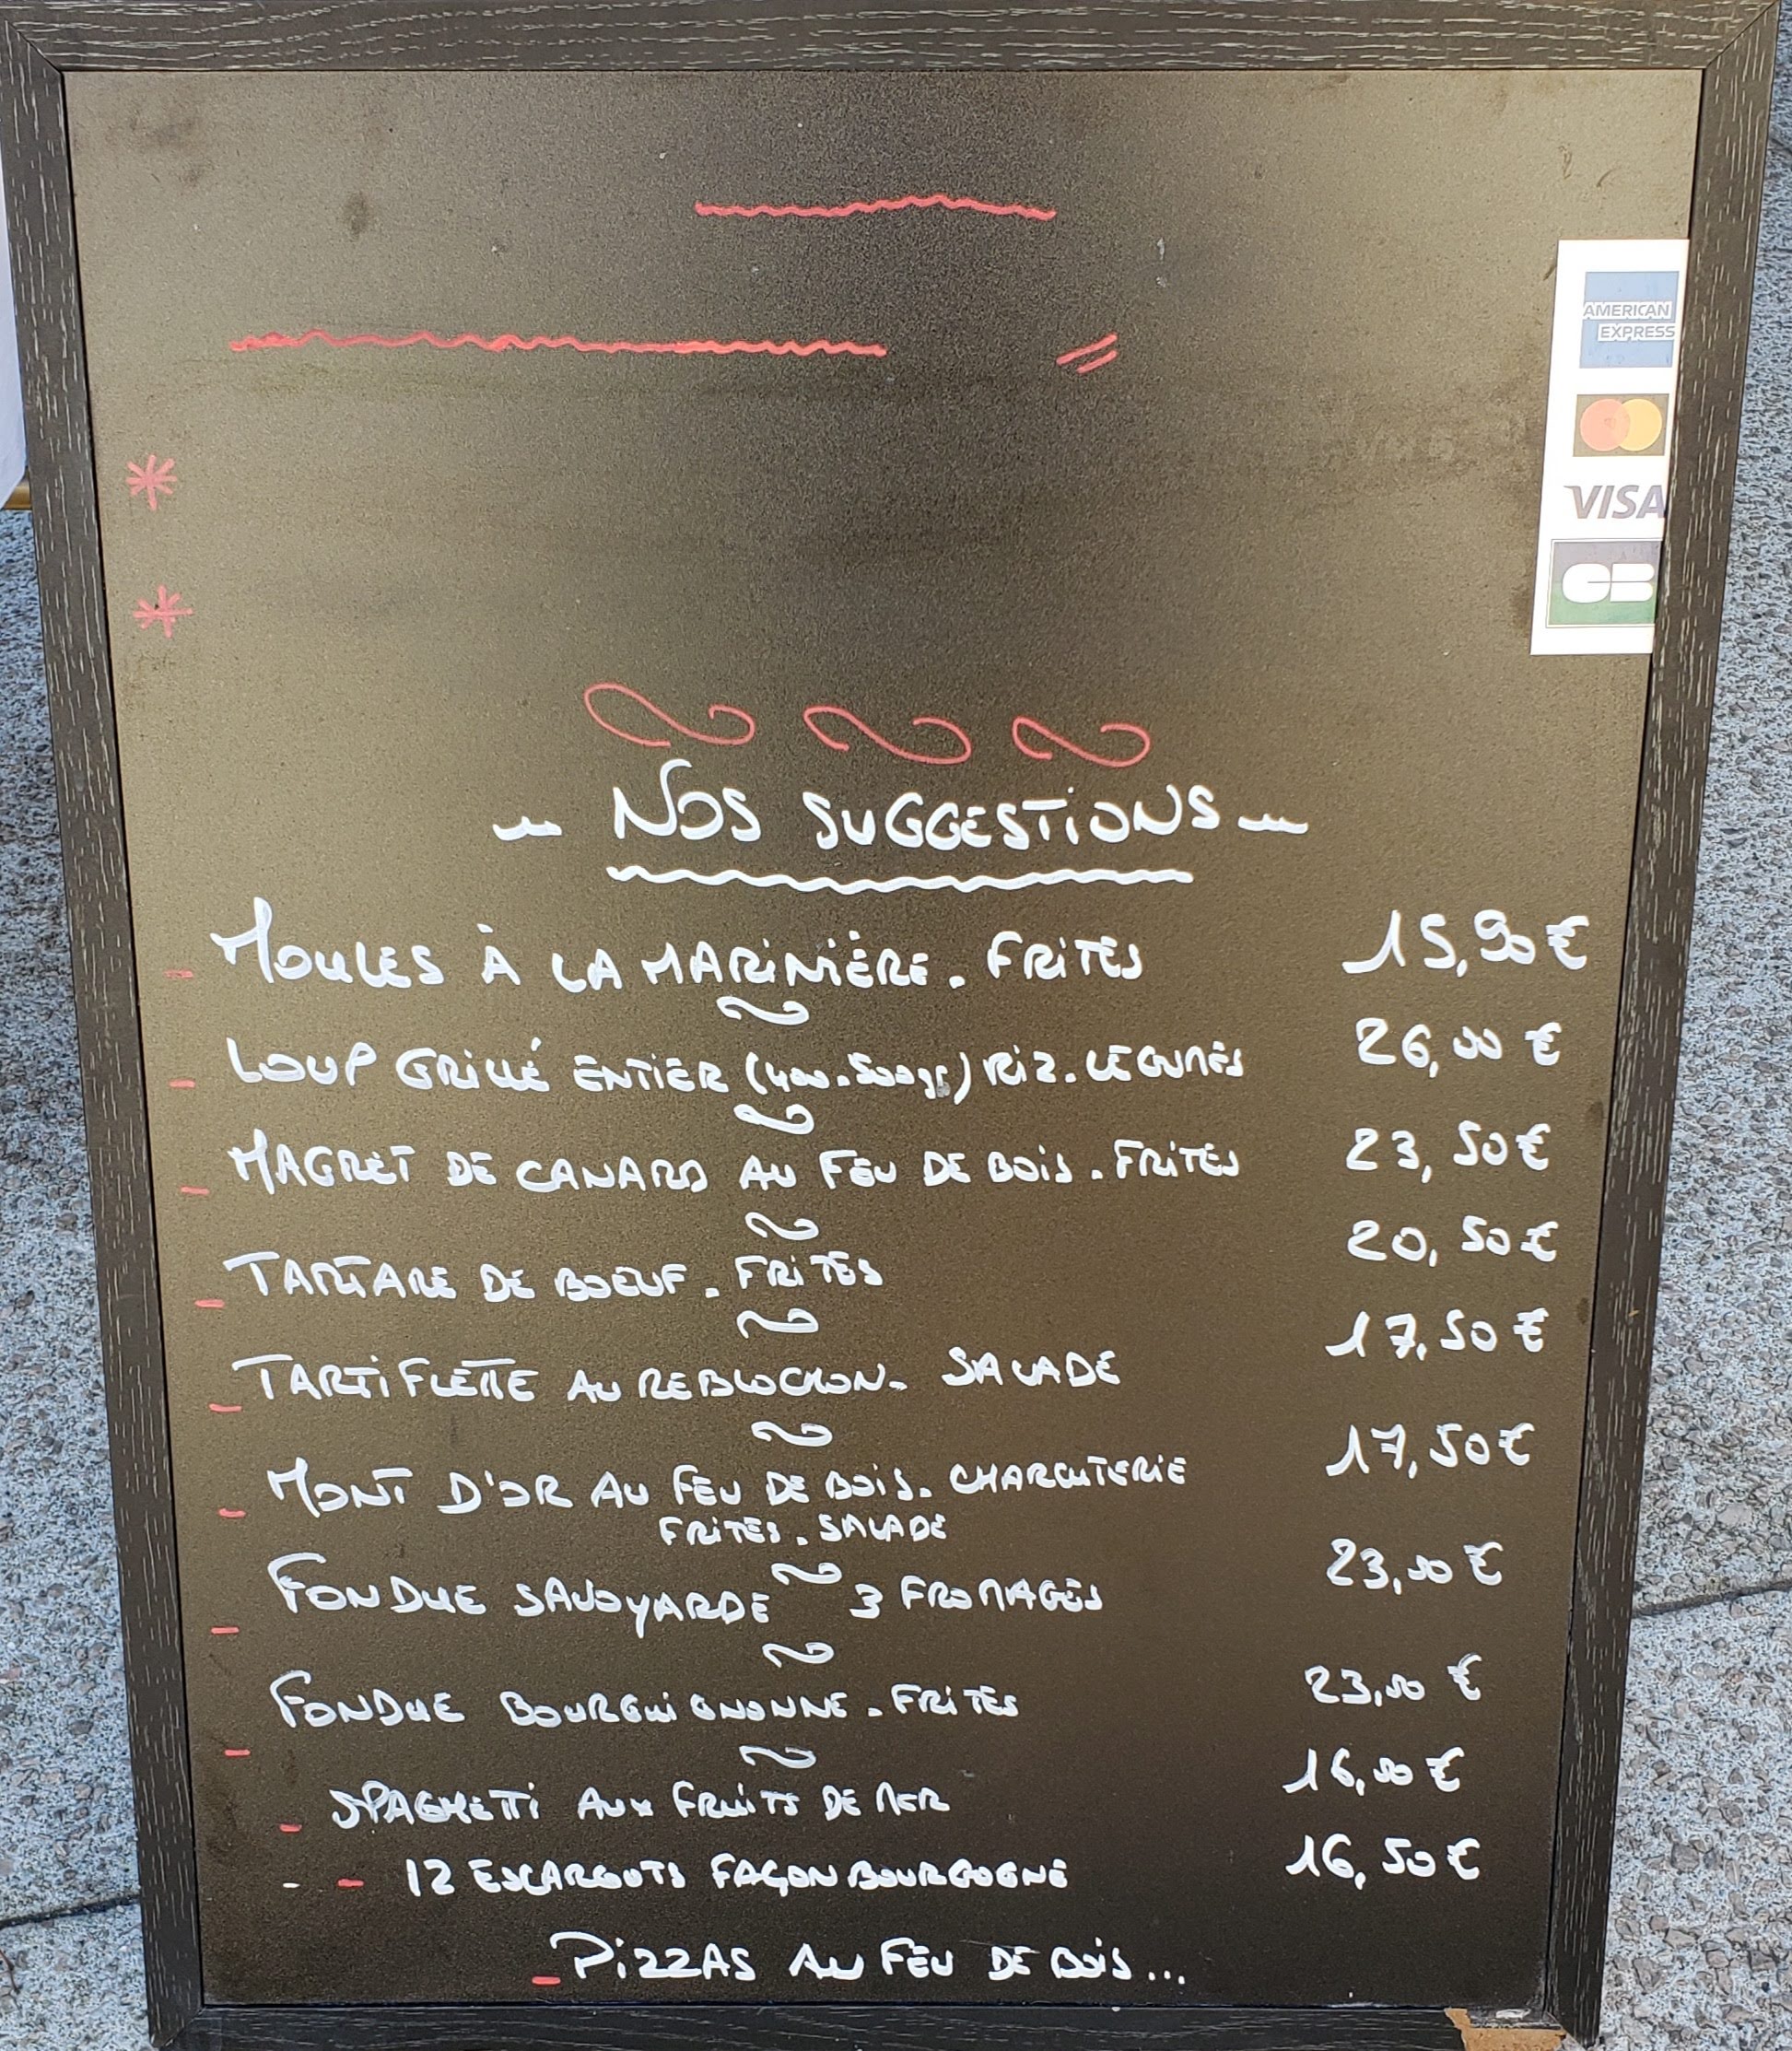 AMERICAN
EXPRESS
VISA
CB
NOS SUGGESTIONS
- MOULES À LA MARINIÈRE. FRITES 15,90€
- LOUP GRILLÉ ENTIER (400.500gr) RIZ. LÉGUMES 26,00 €
- MAGRET DE CANARD AU FEU DE BOIS. FRITES 23,50€
- TARTARE DE BOEUF. FRITES 20,50€
- TARTIFLETTE AU REBLOCHON. SALADE 17,50€
- MONT D'OR AU FEU DE BOIS. CHARCUTERIE 17,50€
FRITES. SALADE
- FONDUE SAVOYARDE 3 FROMAGES 23,00€
- FONDUE BOURGUIGNONNE. FRITES 23,00 €
- SPAGHETTI AUX FRUITS DE MER 16,00€
- - 12 ESCARGOTS FAÇON BOURGOGNE 16,50€
- PIZZAS AU FEU DE BOIS...